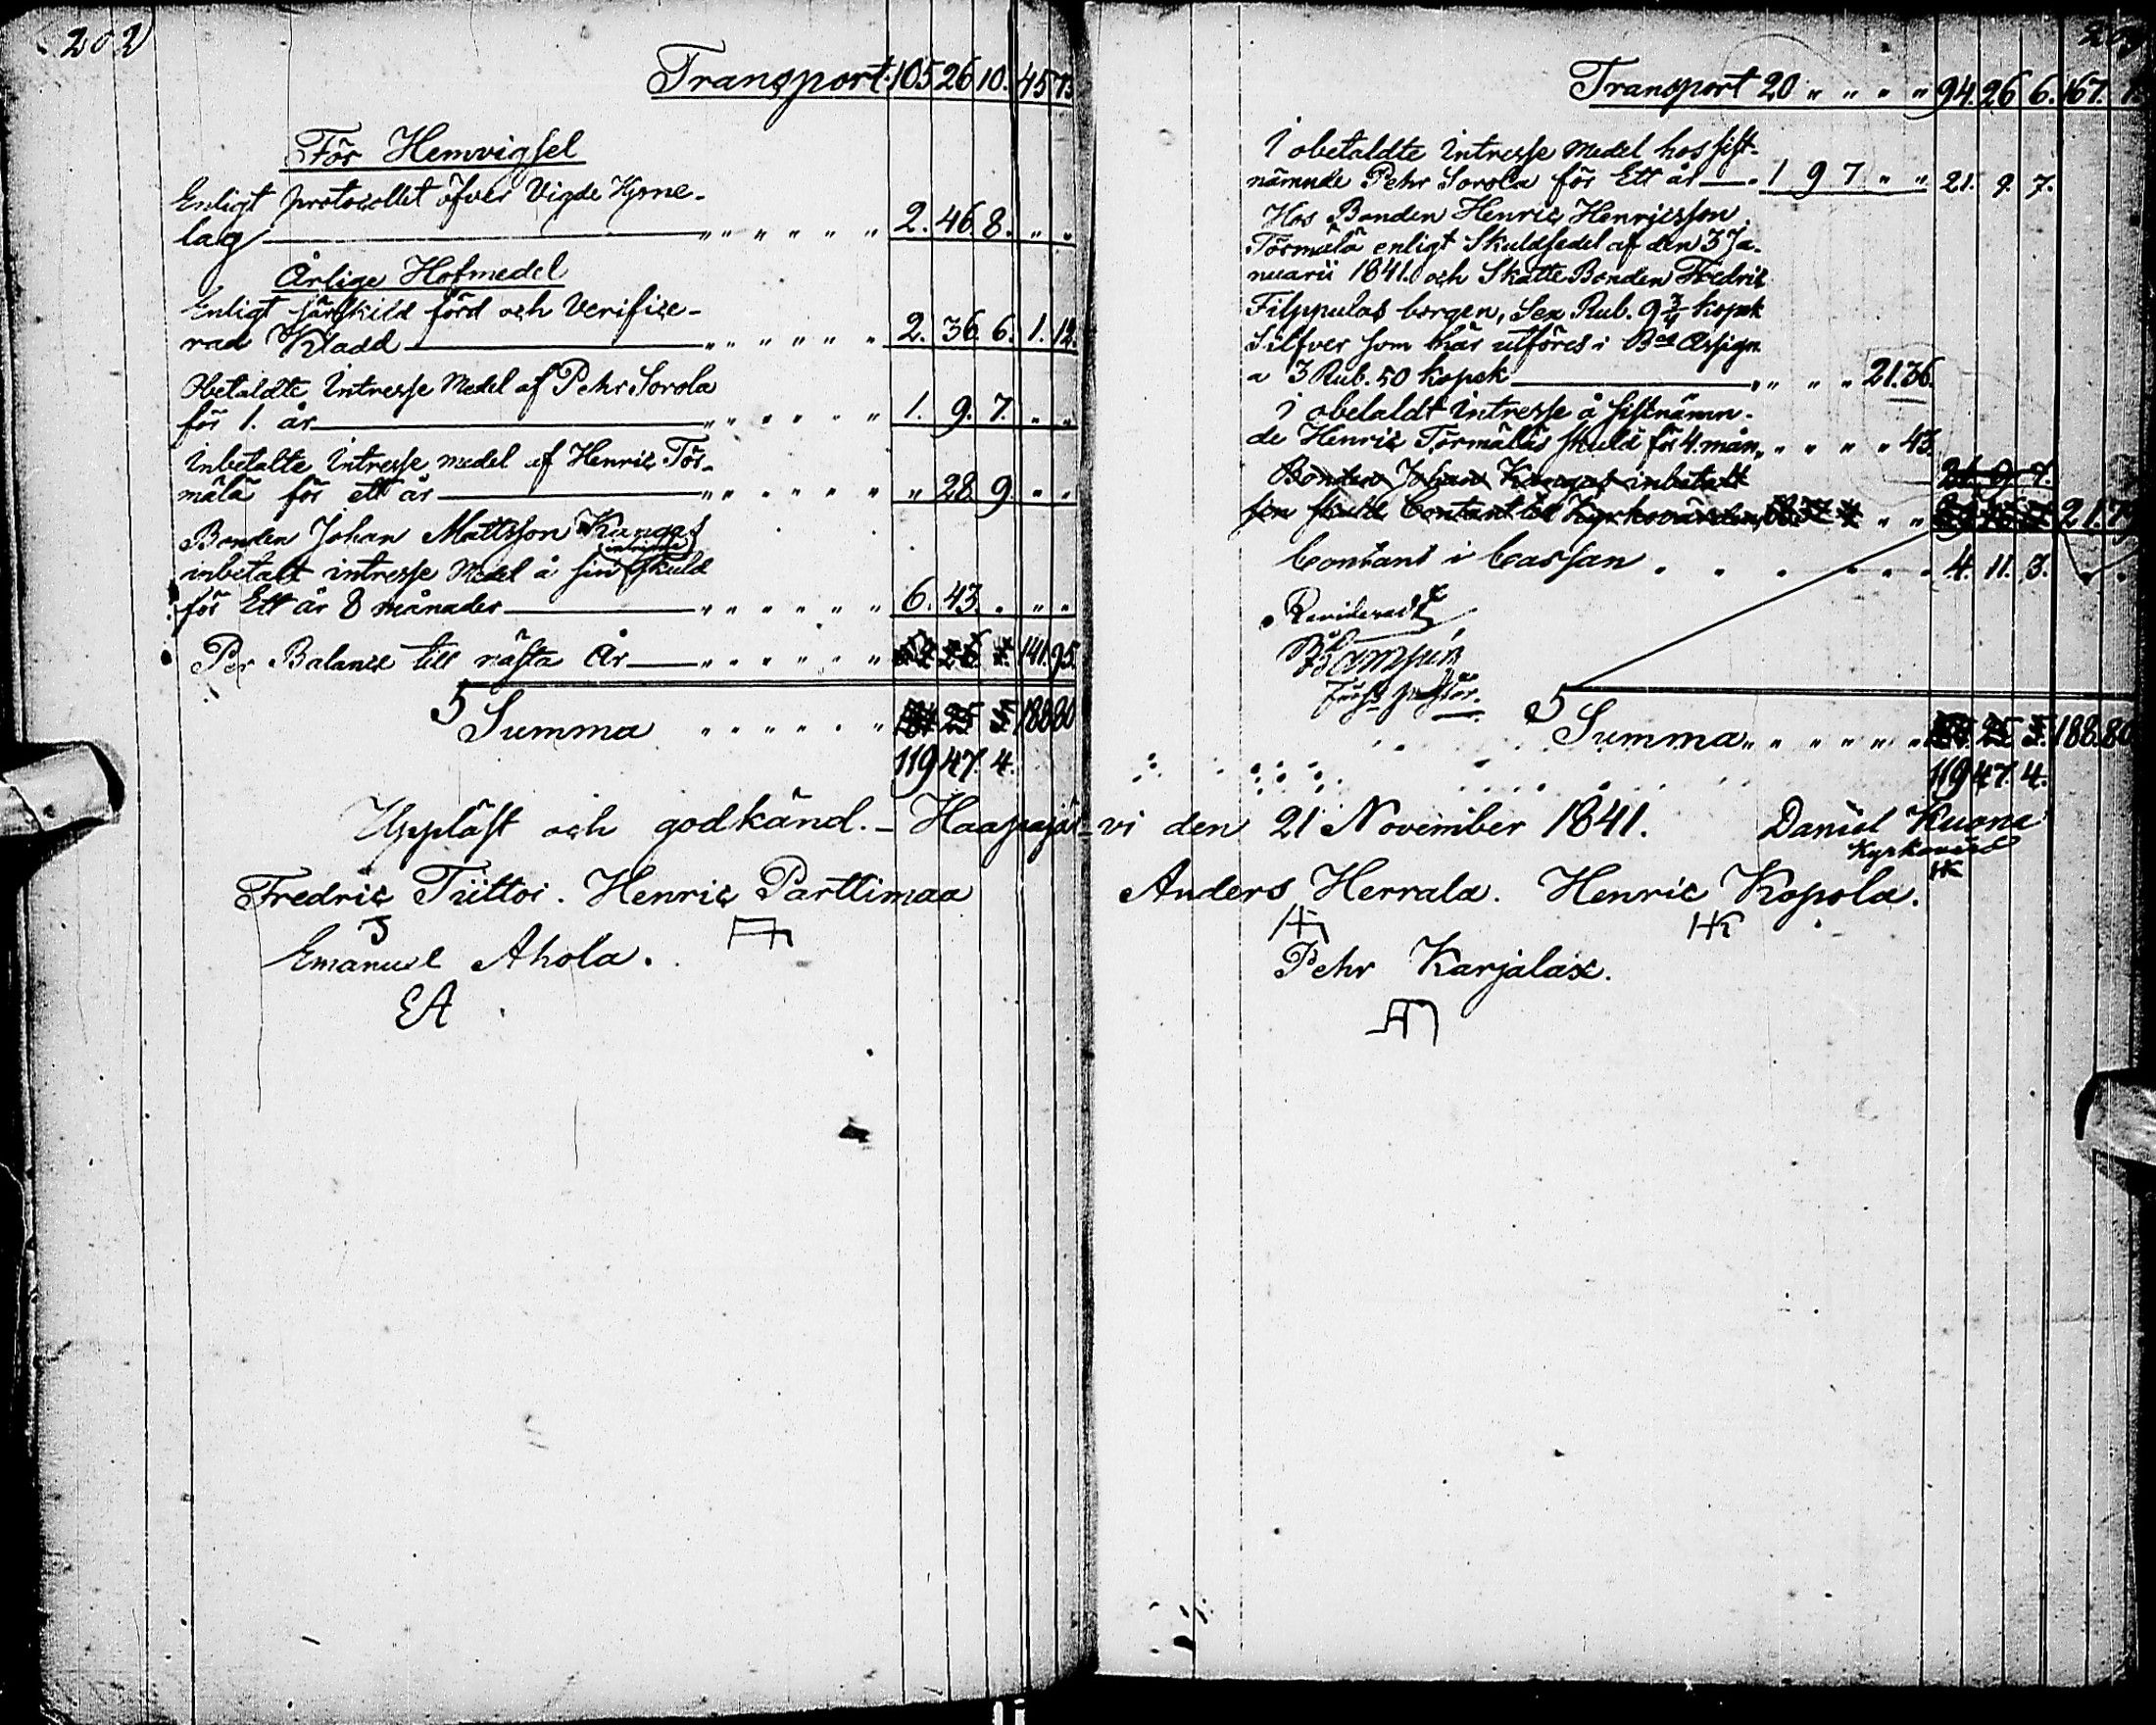 202
Transport. 105 26 10. 45 73
För Hemvigsel
Enligt protocollet öfver Vigde Hjone-
lag — " " " " " " 2. 46. 8. " "
Årlige Hofmedel
Enligt särskild förd och Verifice-
rad Kladd — " " " " " " 2. 36. 6. 1. 12.
Obetaldte Intresse Medel af Pehr Sorola
för 1. år — " " " " " " 1. 9. 7. " "
Inbetalte Intresse medel af Henric Tör-
mälä för ett år — " " " " " " " 28 9. " "
Bonden Johan Mattsson Kangas
inbetalt intresse Medel å sin skuld
för Ett år 8 månader — " " " " " " 6. 43. " " "
Per Balance till nästa År — " " " " " " 141. 95.
Summa " " " " " " 188 80
119 47. 4.
Uppläst och godkänd. – Haapajär-
Fredric Tiittoi. Henric Parttimaa
Emanuel Ahola.
EA
Transport 20 " " " " 94. 26 6. 167. 1.
I obetaldte Intresse Medel hos sist-
nämnde Pehr Sorola för Ett år — 1 9 7 " " 21. 9. 7.
Hos Bonden Henric Henricsson
Törmälä enligt Skuldsedel af den 3 Ja-
nuarii 1841. och Skatte Bonden Fredric
Filppulas borgen, Sex Rub. 9 3/4 kopek
Silfver som här utföres i Bco Assign.
a 3 Rub. 50 kopek — " " " " 21. 36.
I obetaldt Intresse å sistnämn-
de Henric Törmäläs skuld för 4. mån. " " " " 43.
Bonden Johan Kangas inbetalt
sin skuld Contant till Kyrkovärden " " 21. 79
Contant i Cassan . . . . . . 4. 11. 3. " "
Revideradt
Summa " " " " " " 188. 80
119 47. 4.
vi den 21 November 1841. Daniel Kuona
Kyrkovärd
HK
Anders Herrala. Henric Kopola.
HK
Pehr Karjalax.